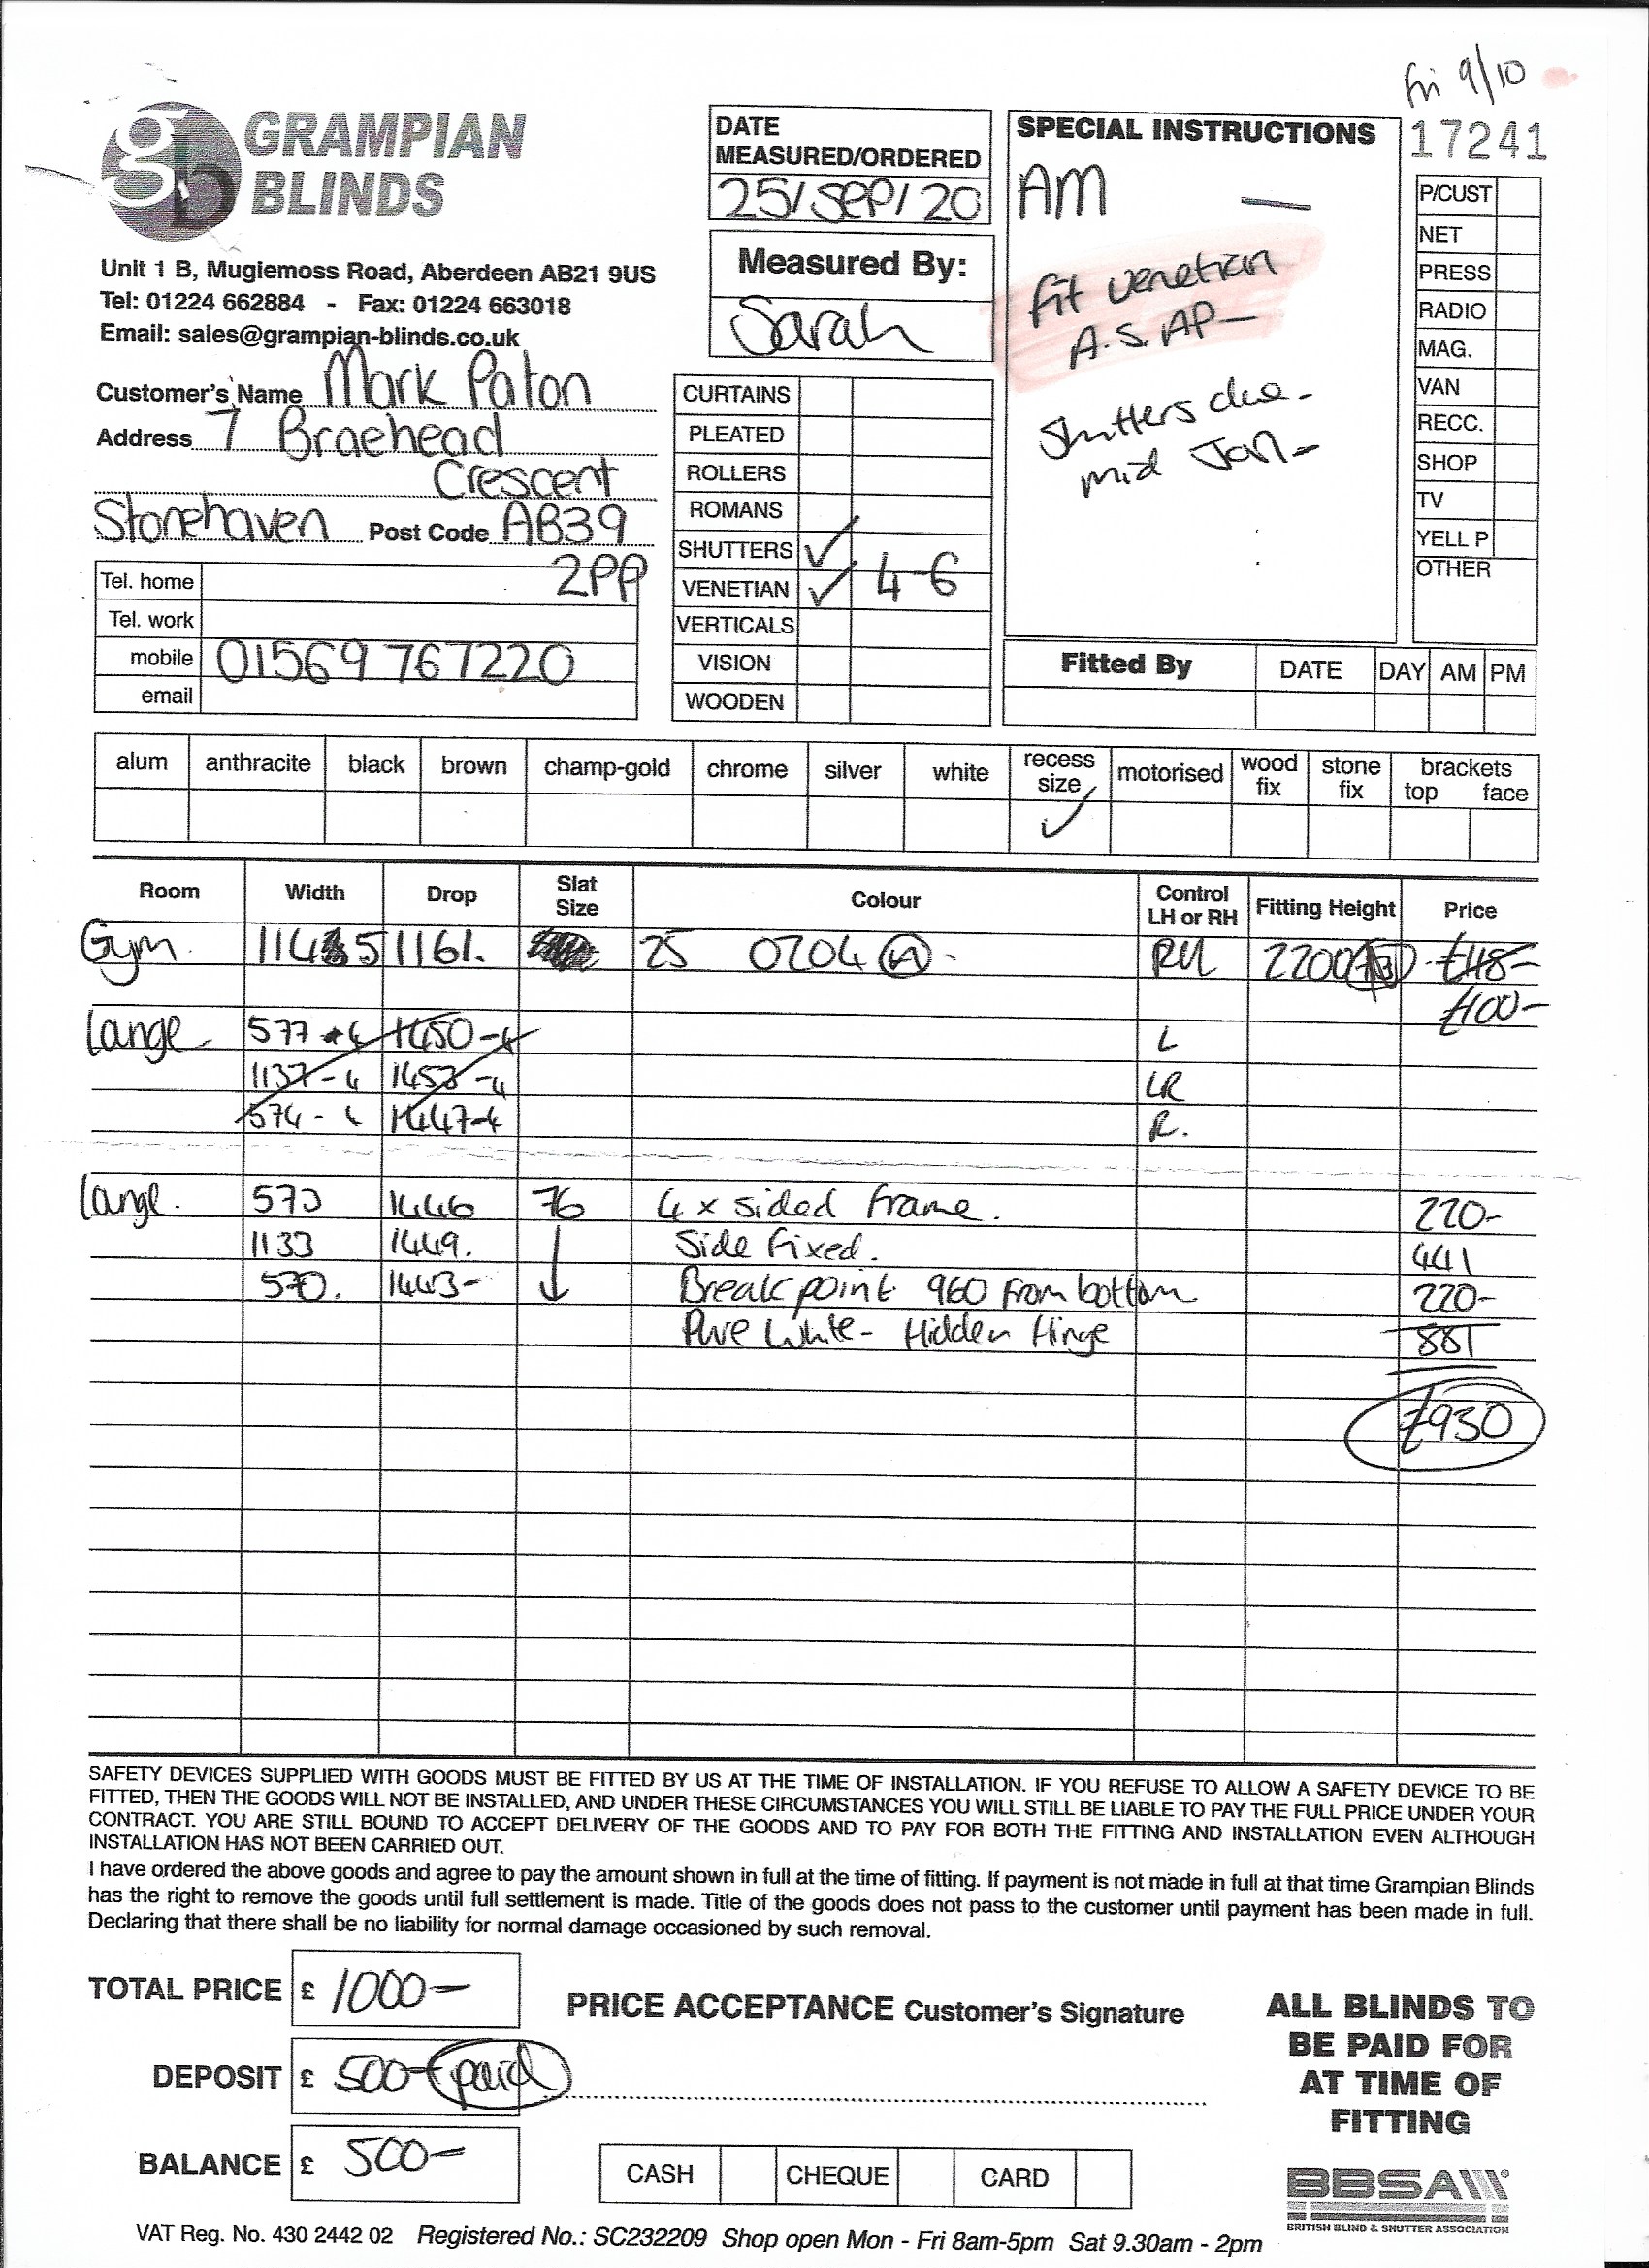 fri 9/10
17241
GRAMPIAN
BLINDS
Unit 1 B, Mugiemoss Road, Aberdeen AB21 9US
Tel: 01224 662884 - Fax: 01224 663018
Email: sales@grampian-blinds.co.uk
Customer's Name Mark Paton
Address 7 Braehead
Crescent
Stonehaven Post Code AB39
2PP
Tel. home
Tel. work
mobile 01569 767220
email
DATE
MEASURED/ORDERED
25/SEP/20
Measured By:
Sarah
CURTAINS
PLEATED
ROLLERS
ROMANS
SHUTTERS ✓
VENETIAN ✓ 4-6
VERTICALS
VISION
WOODEN
SPECIAL INSTRUCTIONS
AM
fit venetian
A.S.AP-
Shutters due-
mid Jan-
P/CUST
NET
PRESS
RADIO
MAG.
VAN
RECC.
SHOP
TV
YELL P
OTHER
Fitted By DATE DAY AM PM
alum anthracite black brown champ-gold chrome silver white recess size ✓ motorised wood fix stone fix brackets top face
Room Width Drop Slat Size Colour Control LH or RH Fitting Height Price
Gym 1161. 25 0204 RH 2200 £118-
£100-
577 1450-4 L
1137-4 1453-4 LR
574-4 1447-4 R.
573 1446 76 4 x sided frame. 220-
1133 1449. Side fixed. 441
570. 1443- Break point 960 from bottom 220-
Pure White- Hidden Hinge 881
£930
SAFETY DEVICES SUPPLIED WITH GOODS MUST BE FITTED BY US AT THE TIME OF INSTALLATION. IF YOU REFUSE TO ALLOW A SAFETY DEVICE TO BE
FITTED, THEN THE GOODS WILL NOT BE INSTALLED, AND UNDER THESE CIRCUMSTANCES YOU WILL STILL BE LIABLE TO PAY THE FULL PRICE UNDER YOUR
CONTRACT. YOU ARE STILL BOUND TO ACCEPT DELIVERY OF THE GOODS AND TO PAY FOR BOTH THE FITTING AND INSTALLATION EVEN ALTHOUGH
INSTALLATION HAS NOT BEEN CARRIED OUT.
I have ordered the above goods and agree to pay the amount shown in full at the time of fitting. If payment is not made in full at that time Grampian Blinds
has the right to remove the goods until full settlement is made. Title of the goods does not pass to the customer until payment has been made in full.
Declaring that there shall be no liability for normal damage occasioned by such removal.
TOTAL PRICE £ 1000-
DEPOSIT £ 500- paid
BALANCE £ 500-
PRICE ACCEPTANCE Customer's Signature
CASH CHEQUE CARD
ALL BLINDS TO
BE PAID FOR
AT TIME OF
FITTING
BBSA
BRITISH BLIND & SHUTTER ASSOCIATION
VAT Reg. No. 430 2442 02 Registered No.: SC232209 Shop open Mon - Fri 8am-5pm Sat 9.30am - 2pm